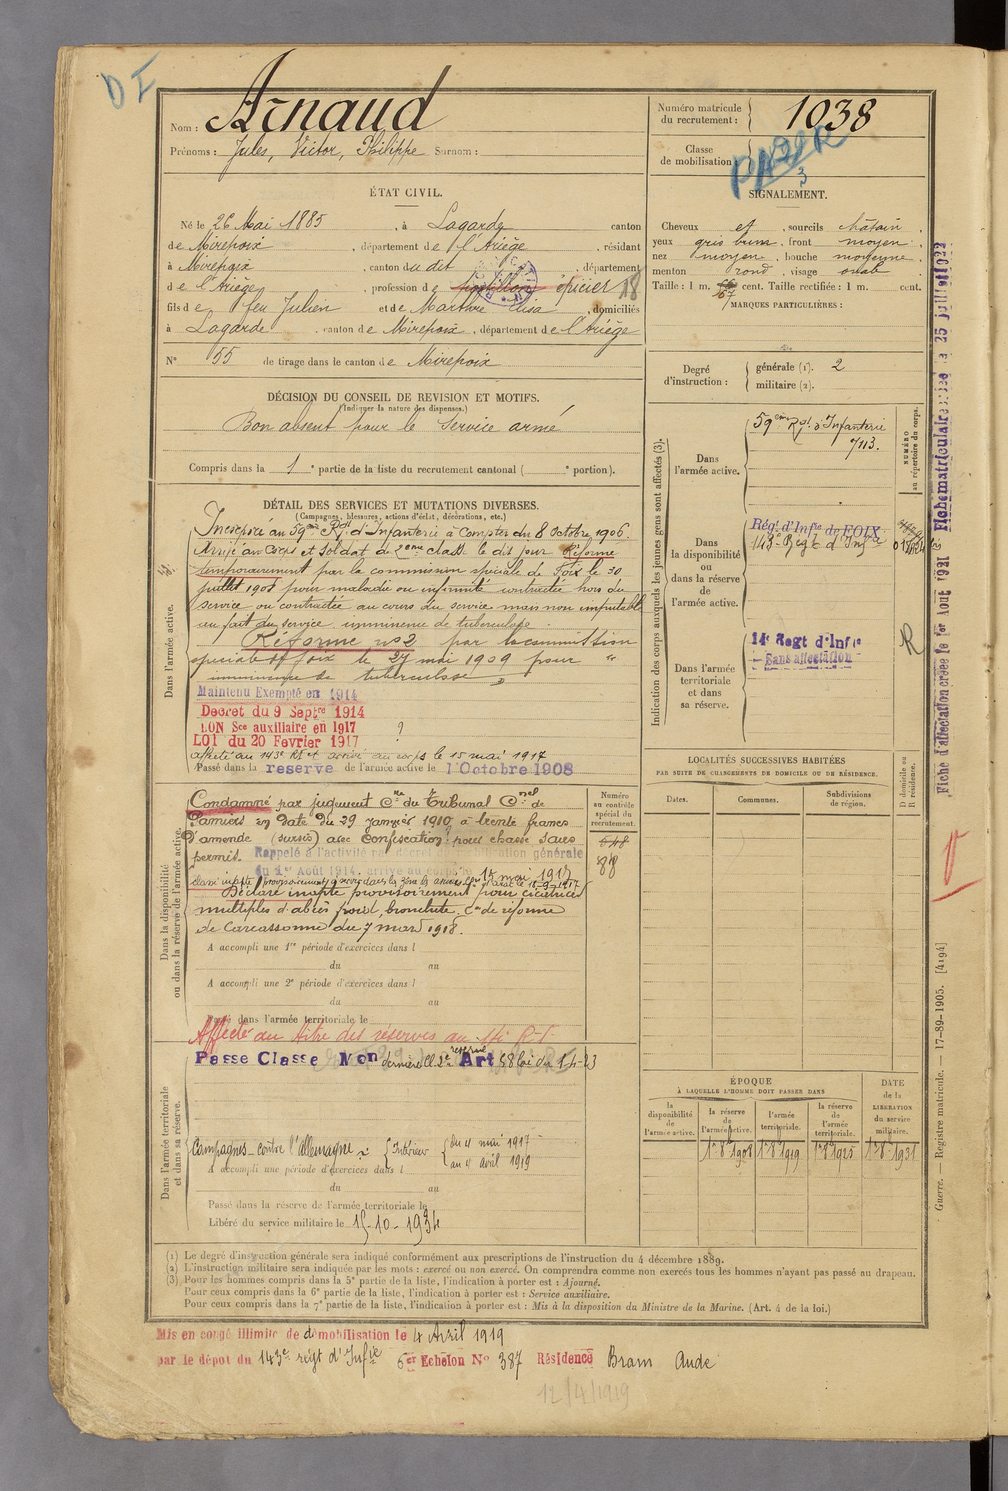 D I
Nom : Arnaud
Prénoms : Jules, Victor, Philippe Surnom :
Numéro matricule
du recrutement : 1038
Classe
de mobilisation :
3
ÉTAT CIVIL.
Né le 26 Mai 1885, à Lagarde canton
de Mirepoix, département de l'Ariège, résidant
à Mirepoix, canton du dit, département
de l'Ariège, profession de postillon épicier 18
fils de feu Julien et de Marthre Elisa, domiciliés
à Lagarde, canton de Mirepoix, département de l'Ariège
N° 55 de tirage dans le canton de Mirepoix
SIGNALEMENT.
Cheveux et sourcils châtain.
yeux gris brun, front moyen.
nez moyen, bouche moyenne.
menton rond, visage ovale.
Taille : 1 m. cent. Taille rectifiée : 1 m. cent.
67
MARQUES PARTICULIÈRES :
Degré
d'instruction :
générale (1). 2
militaire (2).
DÉCISION DU CONSEIL DE REVISION ET MOTIFS.
(Indiquer la nature des dispenses.)
Bon absent pour le service armé
Compris dans la 1e partie de la liste du recrutement cantonal ( e portion).
DÉTAIL DES SERVICES ET MUTATIONS DIVERSES.
(Campagnes, blessures, actions d'éclat, décorations, etc.)
Dans l'armée active.
Incorporé au 59eme Rgt d'Infanterie à compter du 8 octobre 1906.
Arrivé au corps et soldat de 2eme classe le dit jour Réformé
temporairement par la commission spéciale de Foix le 30
juillet 1907 pour maladie ou infirmité contractée hors du
service ou contractée au cours du service mais non imputable
au fait du service. imminence de tuberculose.
Réformé n° 2 par la commission
spéciale de Foix le 27 mai 1909 pour
imminence de tuberculose
Maintenu Exempté en 1914
Decret du 9 Septre 1914
BON Sce auxiliaire en 1917
LOI du 20 Fevrier 1917
affecté au 143e RI et arrivé au corps le 15 mai 1917
Passé dans la reserve de l'armée active le 1 Octobre 1908
Dans la disponibilité
ou dans la réserve de l'armée active.
Condamné par jugement Cre du Tribunal Cnel de
Pamiers en date du 29 janvier 1910 à trente francs
d'amende (sursis) avec confiscation pour chasse sans
permis. Rappelé à l'activité décret mobilisation générale
du 1er Août 1914. arrivé au corps le 15 mai 1917
Déclaré inapte provisoirement pour cicatrices
multiples d'abcès froid, bronchite. Con de réforme
de Carcassonne du 7 mars 1918.
Numéro
au contrôle
spécial du
recrutement.
648
88
A accompli une 1re période d'exercices dans l
du au
A accompli une 2e période d'exercices dans l
du au
Passé dans l'armée territoriale le
Affecté au titre des réserves au 14e R.I
Passe Classe Mon dernière Cl. 2e reserve Art 58 loi du 1-4-23
Dans l'armée territoriale
et dans sa réserve.
Campagnes contre l'allemagne : Intérieur
du 4 mai 1917
au 4 avril 1919
A accompli une période d'exercices dans l
du au
Passé dans la réserve de l'armée territoriale le
Libéré du service militaire le 15-10-1934
Indication des corps auxquels les jeunes gens sont affectés (3).
Dans
l'armée active.
59eme Rgt d'Infanterie
7113.
NUMÉRO
au répertoire du corps.
Dans
la disponibilité
ou
dans la réserve
de
l'armée active.
Régt d'Infie de FOIX
143e Regt d'Infie
Dans l'armée
territoriale
et dans
sa réserve.
14e Regt d'Infie
Sans affectation
R
LOCALITÉS SUCCESSIVES HABITÉES
PAR SUITE DE CHANGEMENTS DE DOMICILE OU DE RÉSIDENCE.
Dates. Communes. Subdivisions
de région.
D domicile ou
R résidence.
ÉPOQUE
À LAQUELLE L'HOMME DOIT PASSER DANS
la
disponibilité
de
l'armée active.
la réserve
de
l'armée active.
l'armée
territoriale.
la réserve
de
l'armée
territoriale.
DATE
de la
LIBÉRATION
du service
militaire.
1er 8e 1908 1er 8e 1919 1er 8e 1925 1er 8e 1931
Fiche d'affectation créée le 1er Août 1921 Fiche matriculaire créée le 25 juillet 1922
Guerre. — Registre matricule. — 17-89-1905. [4194]
(1) Le degré d'instruction générale sera indiqué conformément aux prescriptions de l'instruction du 4 décembre 1889.
(2) L'instruction militaire sera indiquée par les mots : exercé ou non exercé. On comprendra comme non exercés tous les hommes n'ayant pas passé au drapeau.
(3) Pour les hommes compris dans la 5e partie de la liste, l'indication à porter est : Ajourné.
Pour ceux compris dans la 6e partie de la liste, l'indication à porter est : Service auxiliaire.
Pour ceux compris dans la 7e partie de la liste, l'indication à porter est : Mis à la disposition du Ministre de la Marine. (Art. 4 de la loi.)
Mis en congé illimité de démobilisation le 4 Avril 1919
par le dépot du 143e reigt d'Infie 6er Echelon N° 387 Résidence Bram Aude
12/4/1919